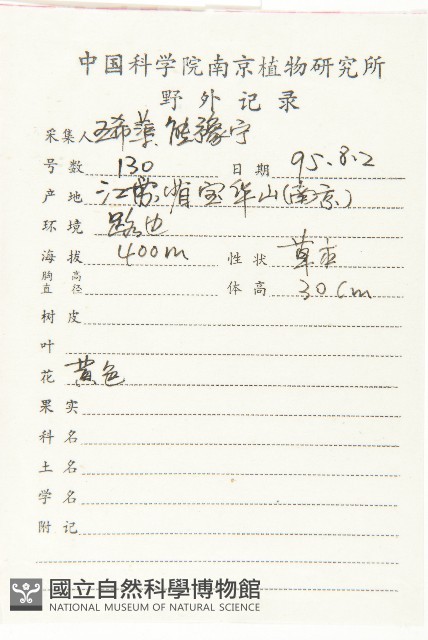 中国科学院南京植物研究所
野外记录
采集人 王希蕖 熊豫宁
号数 130 日期 95.8.2
产地 江苏省宝华山(南京)
环境 路边
海拔 400m 性状 草本
胸高直径 体高 30cm
树皮
叶
花 黄色
果实
科名
土名
学名
附记
國立自然科學博物館
NATIONAL MUSEUM OF NATURAL SCIENCE